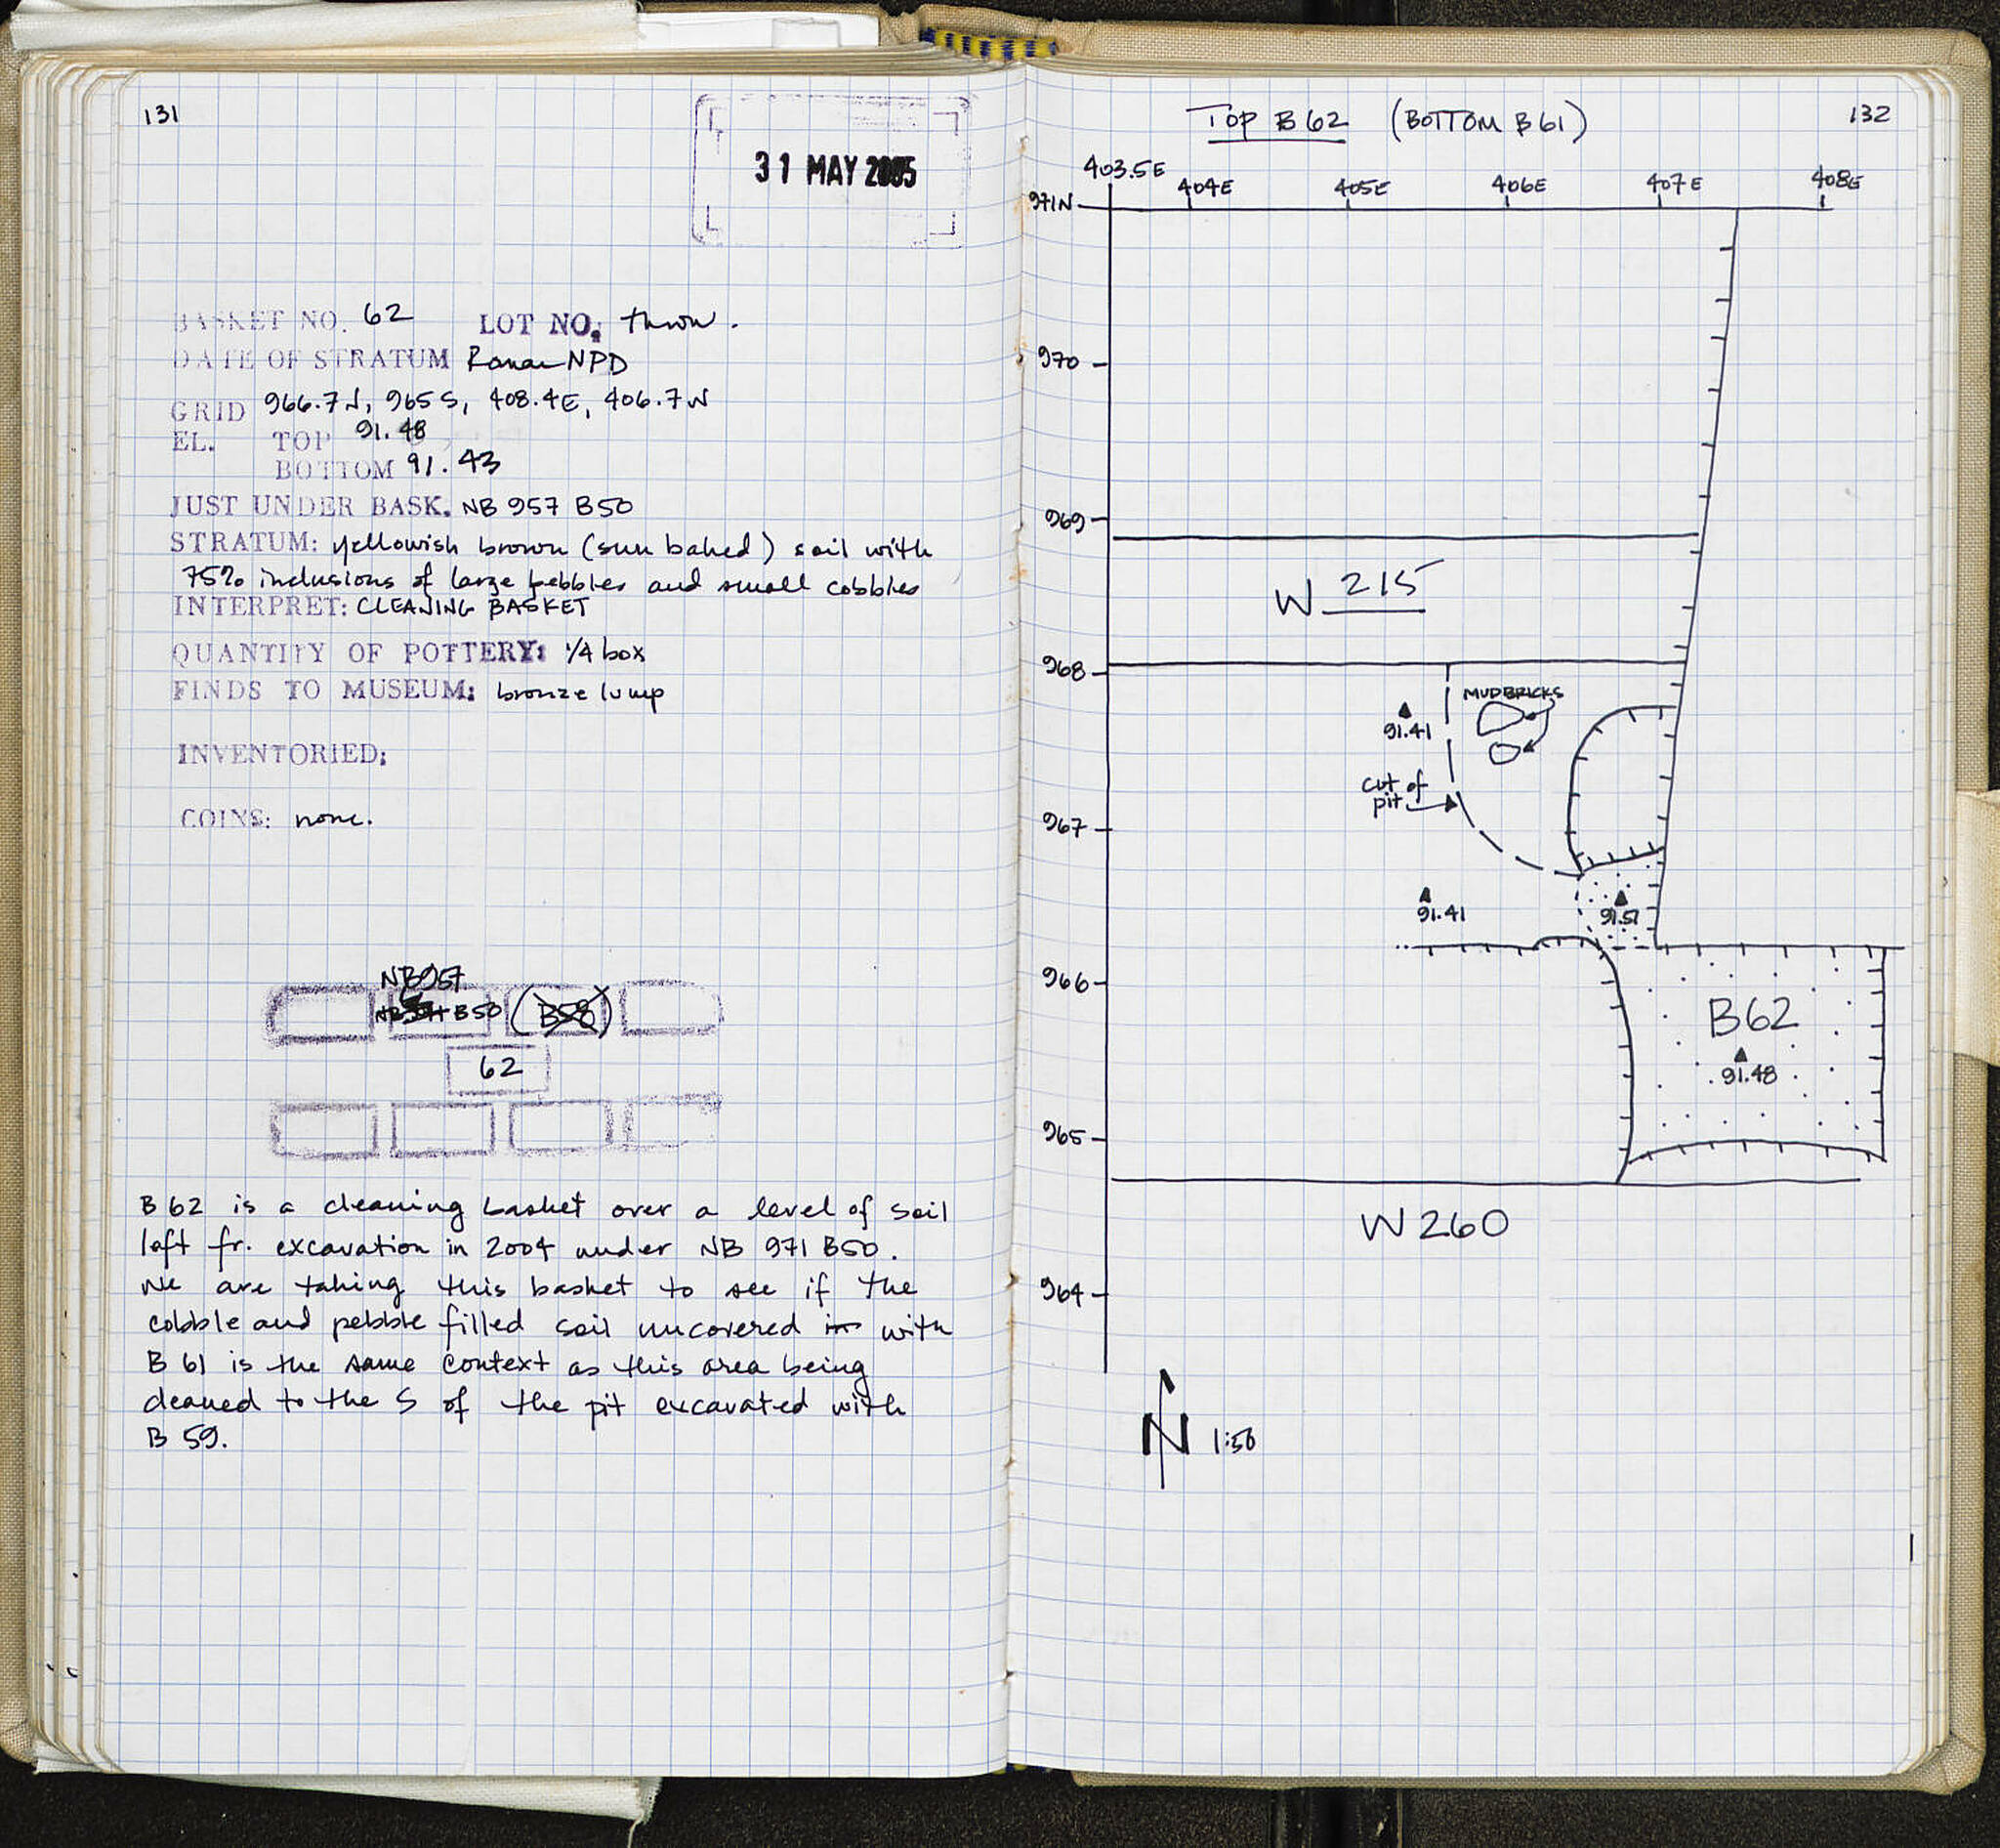 131
31 MAY 2005
BASKET NO. 62 LOT NO. throw.
DATE OF STRATUM Roman NPD
GRID 966.7N, 965S, 408.4E, 406.7W
EL. TOP 91.48
BOTTOM 91.43
JUST UNDER BASK. NB 957 B50
STRATUM: yellowish brown (sun baked) soil with
75% inclusions of large pebbles and small cobbles
INTERPRET: CLEANING BASKET
QUANTITY OF POTTERY: 1/4 box
FINDS TO MUSEUM: bronze lump
INVENTORIED:
COINS: none.
NB957
B50 (B58)
62
B 62 is a cleaning basket over a level of soil
left fr. excavation in 2004 under NB 971 B50.
We are taking this basket to see if the
cobble and pebble filled soil uncovered in with
B 61 is the same context as this area being
cleaned to the S of the pit excavated with
B 59.
TOP B62 (BOTTOM B61)
132
403.5E
404E 405E 406E 407E 408E
971N
970
969
W 215
968
MUDBRICKS
91.41
cut of
pit
967
91.41
91.51
966
B62
91.48
965
W260
964
N 1:50